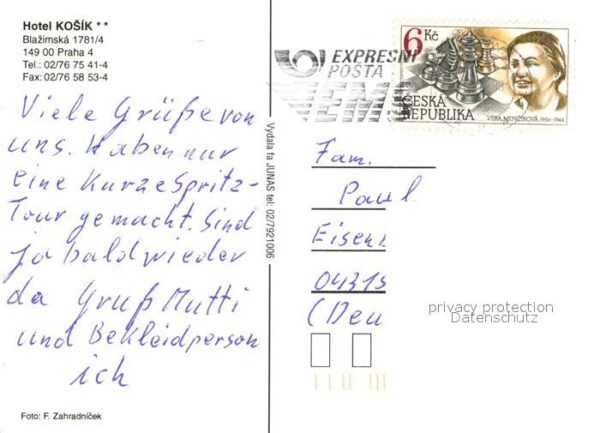 Hotel KOŠÍK **
Blažimská 1781/4
149 00 Praha 4
Tel.: 02/76 75 41-4
Fax: 02/76 58 53-4
Viele Grüße von
uns. Haben nur
eine Kurze Spritz-
Tour gemacht. Sind
ja bald wieder
da Gruß Mutti
und Bekleidperson
ich
Foto: F. Zahradníček
Vydala fa JUNAS tel: 02/7921006
EXPRESNÍ
POŠTA
EMS
6 Kč
ČESKÁ
REPUBLIKA
VĚRA MENČÍKOVÁ 1906-1944
Fam.
Paul
Eisen
04315
(Deu
privacy protection
Datenschutz